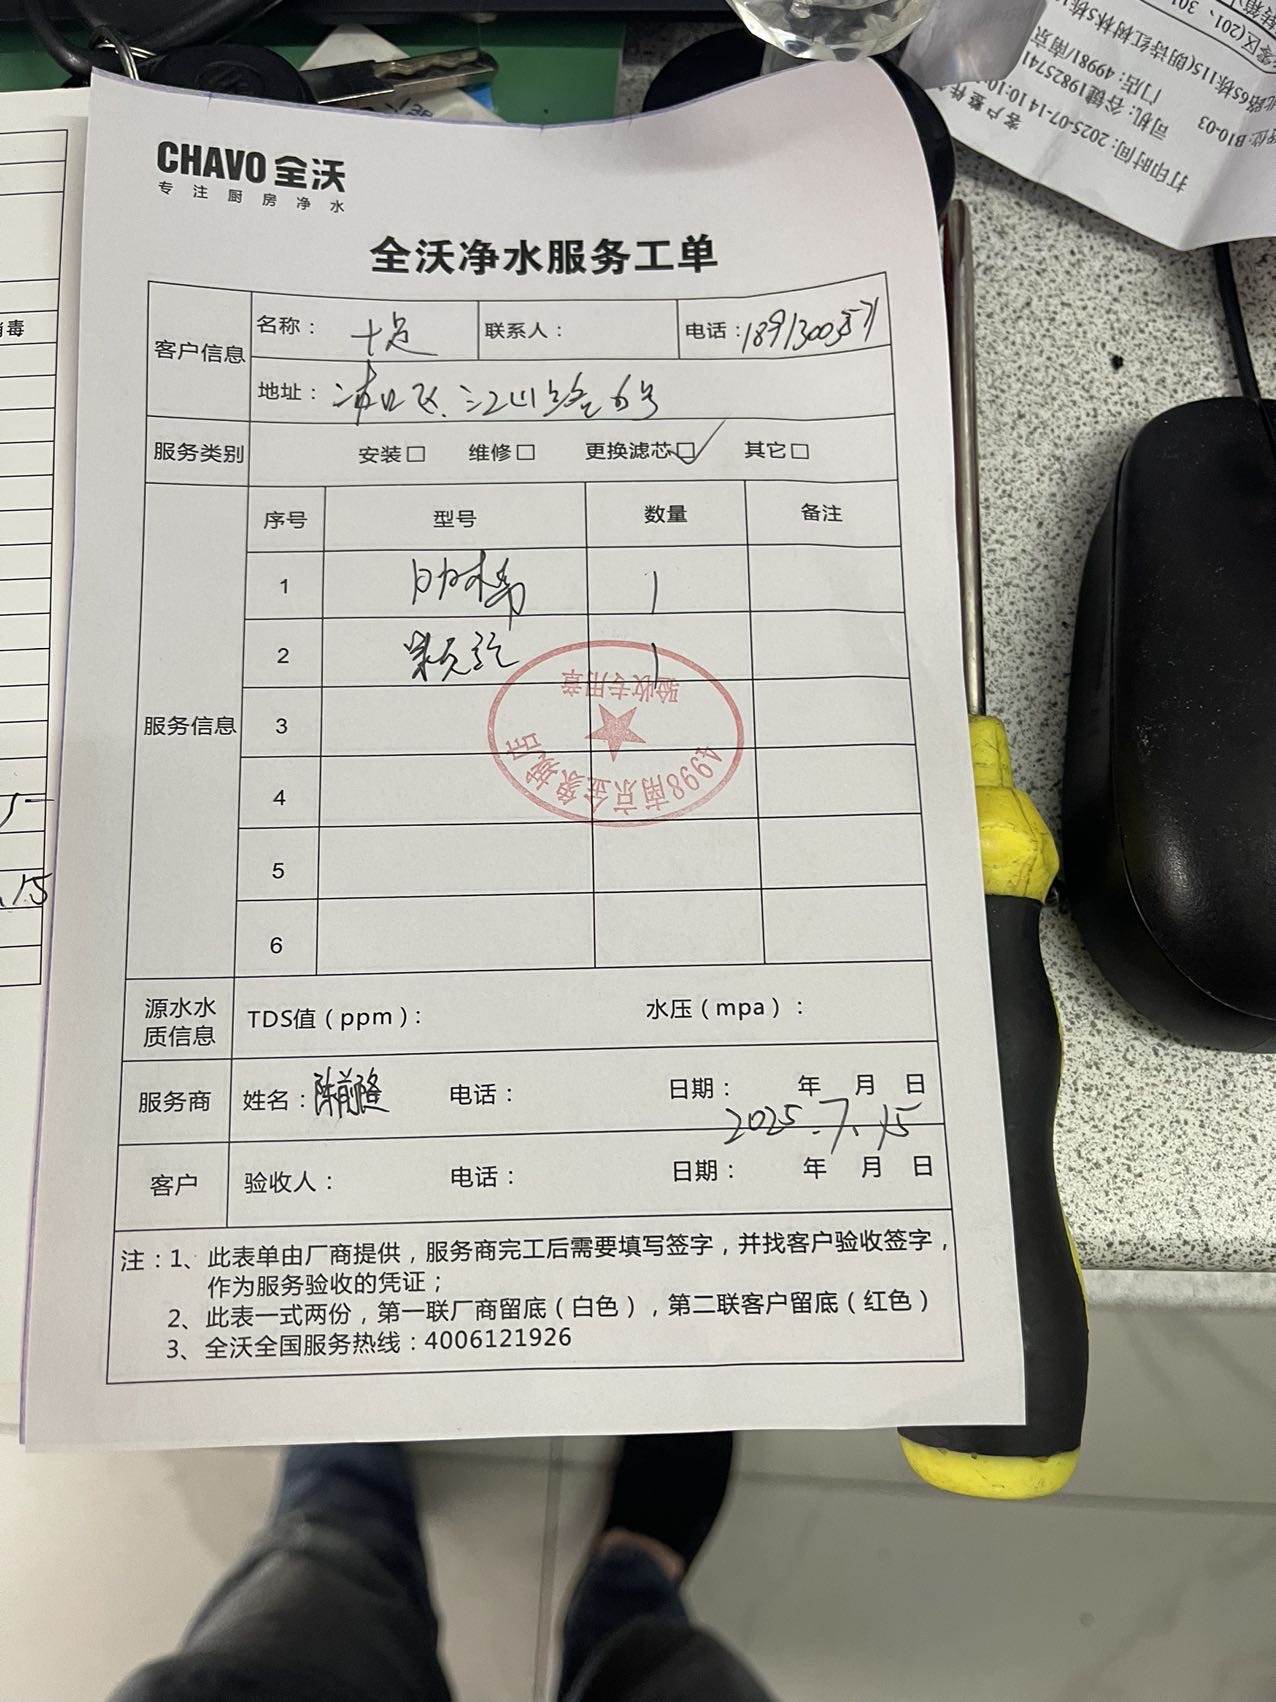 CHAVO 全沃
专注厨房净水
全沃净水服务工单
客户信息
名称： 十足
联系人：
电话：18913003571
地址： 浦口区 江山路 6号
服务类别
安装□ 维修□ 更换滤芯□✓ 其它□
服务信息
序号 型号 数量 备注
1 1
2 1
3
4
5
6
4998南京金象城店
验收专用章
源水水质信息
TDS值（ppm）： 水压（mpa）：
服务商
姓名：陈前隆 电话： 日期： 年 月 日
2025.7.15
客户
验收人： 电话： 日期： 年 月 日
注：1、此表单由厂商提供，服务商完工后需要填写签字，并找客户验收签字，
作为服务验收的凭证；
2、此表一式两份，第一联厂商留底（白色），第二联客户留底（红色）
3、全沃全国服务热线：4006121926
消毒
.15
打印时间: 2025-07-14 10:10
司机: 谷健19825741
门店: 49981/南京
客户整件
B10-03
北路65栋115(朗诗红树林5栋1
零区(201、301